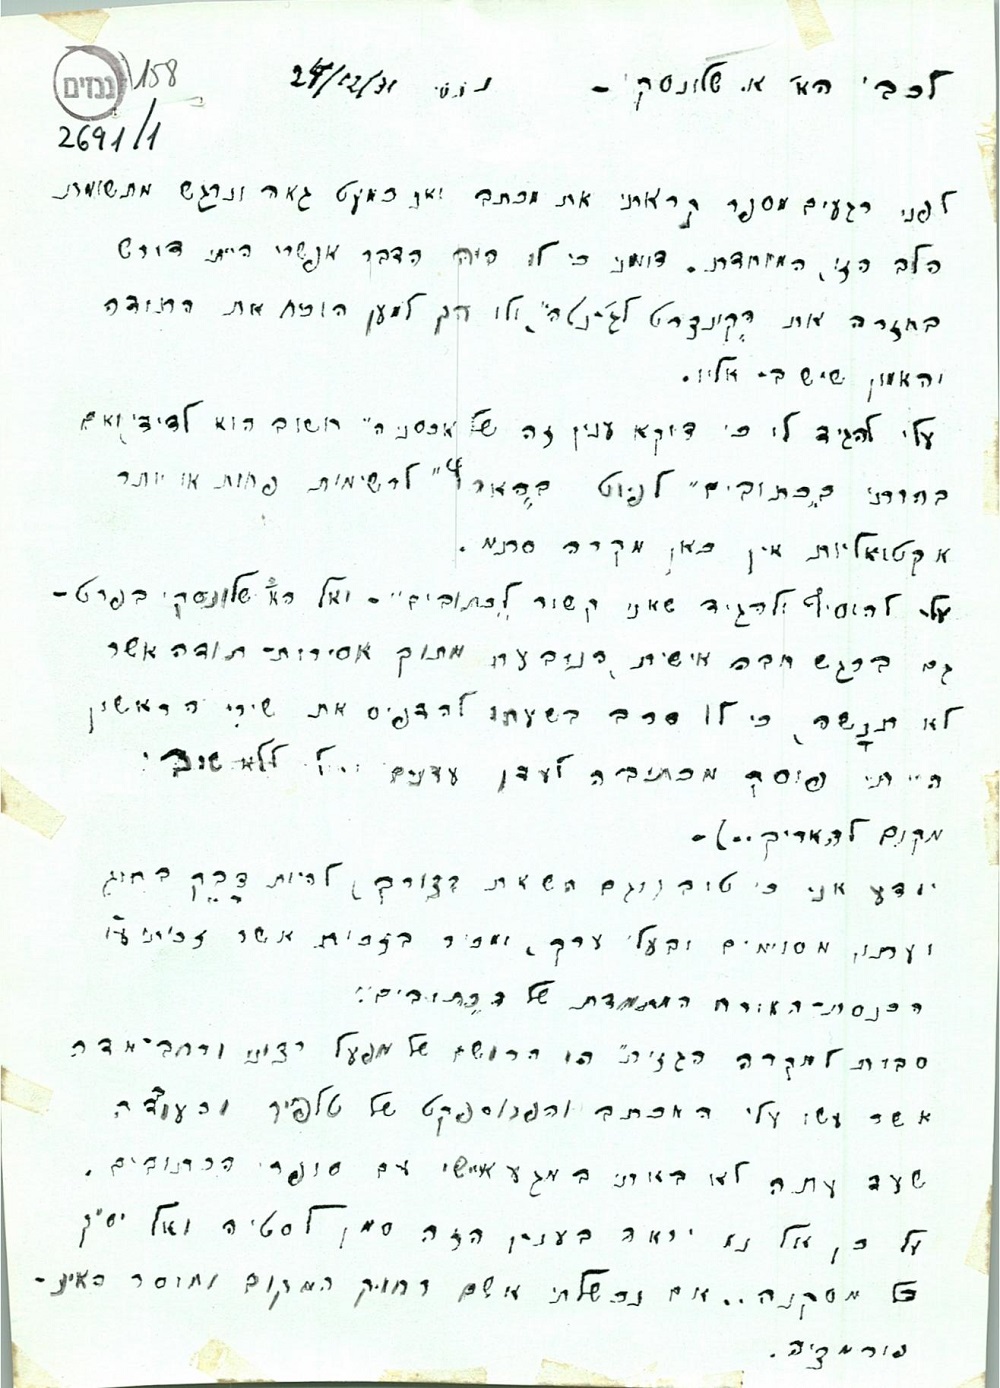 גנזים 158
2691/1
לכבי הא' א. שלונסקי - ננסי 24/12/31
לפני רגעים מספר קראתי את מכתבך ואני כמעט גאה ונרגש מתשומת
הלב הזו, המיוחדת. דומני כי לו היה הדבר אפשרי הייתי דורש
בחזרה את הקונצרט לג'ינטה" ולו רק למען הוכח את התודה
והאמון שיש בי אליו.
עלי להגיד לו כי דוקא ענין זה של אכסניה" חשוב הוא לדידי ואם
בחרתי ב"כתובים" לפיוט ב"הארץ" לרשימות פחות או יותר
אקטואליות אין כאן מקרה סתמי.
עלי להוסיף ולהגיד שאני קשור ל"כתובים" - ואל הא' שלונסקי בפרט -
גם ברגש חבה אישית הנובעת מתוך אסירות-תודה אשר
לא תנשה, כי לו סרב בשעתו להדפיס את שירי הראשון
הייתי פוסק מכתיבה לעדן עדנים
מקום להאריך..)-
יודע אני כי טוב (וגם השאת בצורך) להיות דבק בחוג
ועתון מסוימים ובעלי ערך, ומכיר בזכות אשר זכיתי עי
הכנסת-האורח המתמדת של ה"כתובים".
סבות למקרה הגזית" הן הרושם של מפעל רציני ורחב-מדה
אשר עשו עלי המכתב והפרוספקט של טלפיר והעובדה
שעד עתה לא באתי במגע אישי עם סופרי הכתובים.
על כן אל נא יראה בענין הזה סמן לסטיה ואל יסיק
כל מסקנה.. אם נכשלתי אשם רחוק המקום וחוסר האינ-
פורמציה.